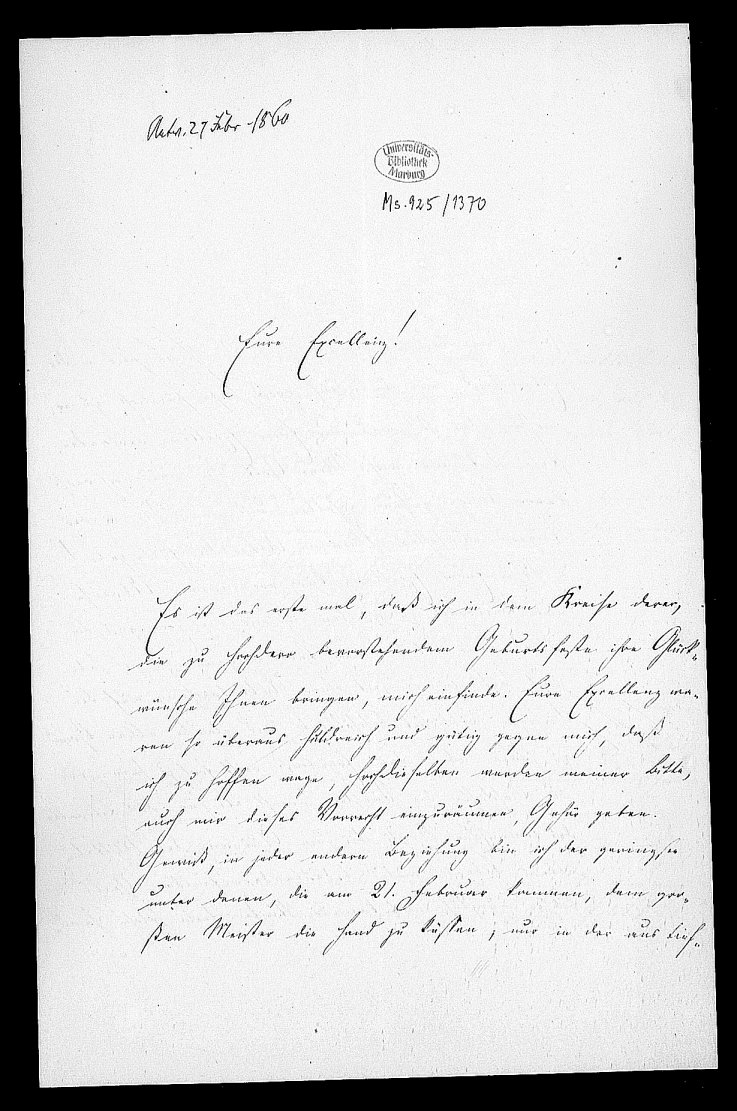 Antw. 27 Febr 1860
Universitäts-
Bibliothek
Marburg
Ms. 925/1370
Eure Excellenz!
Es ist das erste mal, daß ich in dem Kreise derer,
die zu Hochdero bevorstehendem Geburtsfeste ihre Glück-
wünsche Ihnen bringen, mich einfinde. Eure Excellenz wa-
ren so überaus huldreich und gütig gegen mich, daß
ich zu hoffen wage, Hochdieselben werden meiner Bitte,
auch mir dieses Vorrecht einzuräumen, Gehör geben.
Gewiß, in jeder andern Beziehung bin ich der geringste
unter denen, die am 21. Februar kommen, dem gro-
ßen Meister die Hand zu küssen; nur in der aus tief-